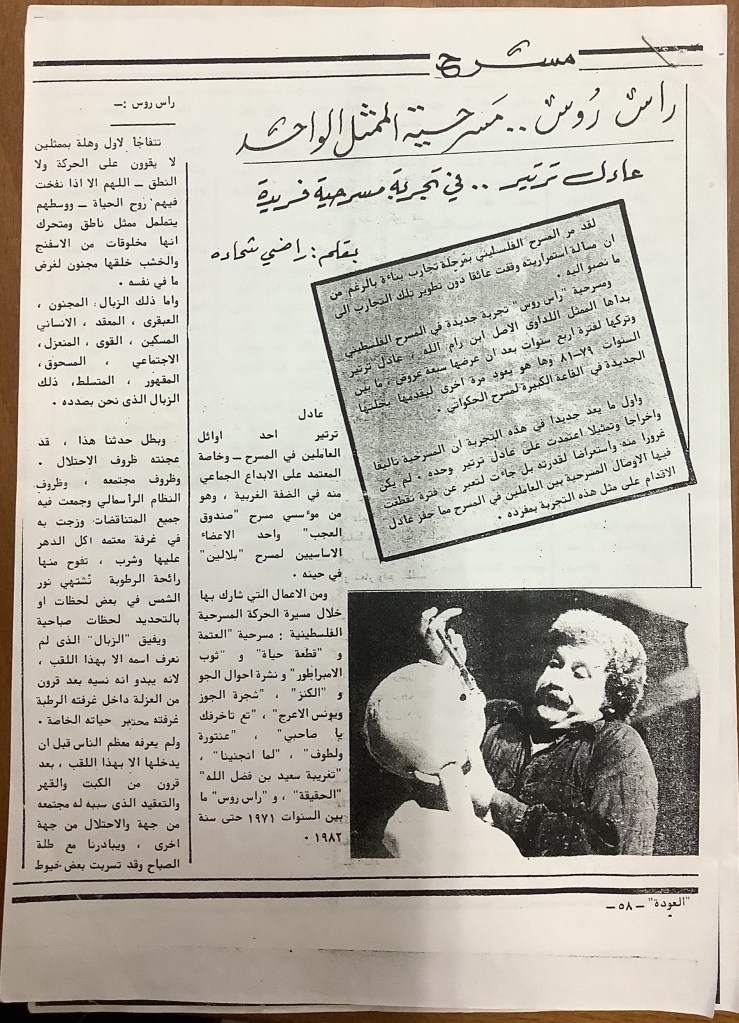 مسرح
راس رُوس .. مَسرحيّة الممثل الواحد
عادل ترتير .. في تجربة مسرحية فريدة
بقلم : راضي شحاده
لقد مر المسرح الفلسطيني بمرحلة تجارب بناءة بالرغم من
ان مسالة استمراريته وقفت عائقا دون تطوير تلك التجارب الى
ما نصبو اليه .
ومسرحية "راس روس" تجربة جديدة في المسرح الفلسطيني
بداها الممثل اللداوى الاصل ابن رام الله ، عادل ترتير
وتركها لفترة اربع سنوات بعد ان عرضها سبعة عروض ، ما بين
السنوات ٧٩–٨١ وها هو يعود مرة اخرى ليقدمها بحلتها
الجديدة في القاعة الكبيرة لمسرح الحكواتي .
واول ما يعد جديدا في هذه التجربة ان المسرحية تاليفا
واخراجا وتمثيلا اعتمدت على عادل ترتير وحده . لم يكن
غرورا منه واستعراضا لقدرته بل جاءت لتعبر عن فترة تقطعت
فيها الاوصال المسرحية بين العاملين في المسرح مما حفز عادل
الاقدام على مثل هذه التجربة بمفرده .
عادل
ترتير احد اوائل
العاملين في المسرح ــ وخاصة
المعتمد على الابداع الجماعي
منه في الضفة الغربية ، وهو
من مؤسسي مسرح "صندوق
العجب" واحد الاعضاء
الاساسيين لمسرح "بلالين"
في حينه .
ومن الاعمال التي شارك بها
خلال مسيرة الحركة المسرحية
الفلسطينية : مسرحية "العتمة
و "قطعة حياة" و "ثوب
الامبراطور" و نشرة احوال الجو
و "الكنز" ، "شجرة الجوز
ويونس الاعرج" ، "تع تاخرفك
يا صاحبي" ، "عنتورة
ولطوف" ، "لما انجنينا" ،
"تغريبة سعيد بن فضل الله"
"الحقيقة" ، و "راس روس" ما
بين السنوات ١٩٧١ حتى سنة
١٩٨٢ .
راس روس :ــ
تتفاجأ لاول وهلة بممثلين
لا يقوون على الحركة ولا
النطق ــ اللهم الا اذا نفخت
فيهم روح الحياة ــ ووسطهم
يتململ ممثل ناطق ومتحرك
انها مخلوقات من الاسفنج
والخشب خلقها مجنون لغرض
ما في نفسه .
واما ذلك الزبال : المجنون ،
العبقرى ، المعقد ، الانساني
المسكين ، القوى ، المنعزل،
الاجتماعي ، المسحوق،
المقهور ، المتسلط، ذلك
الزبال الذى نحن بصدده .
وبطل حدثنا هذا ، قد
عجنته ظروف الاحتلال .
وظروف مجتمعه ، وظروف
النظام الرأسمالي وجمعت فيه
جميع المتناقضات وزجت به
في غرفة معتمه اكل الدهر
عليها وشرب ، تفوح منها
رائحة الرطوبة تُشتهي نور
الشمس في بعض لحظات او
بالتحديد لحظات صباحية
ويفيق "الزبال" الذى لم
نعرف اسمه الا بهذا اللقب ،
لانه يبدو انه نسيه بعد قرون
من العزلة داخل غرفته الرطبة
غرفته مختبر حياته الخاصة .
ولم يعرفه معظم الناس قبل ان
يدخلها الا بهذا اللقب ، بعد
قرون من الكبت والقهر
والتعقيد الذى سببه له مجتمعه
من جهة والاحتلال من جهة
اخرى ، ويبادرنا مع طلة
الصباح وقد تسربت بعض خيوط
"العودة" ــ ٥٨ ــ